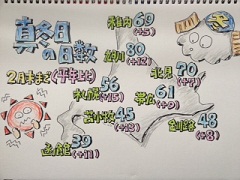 真冬日
の日数
2月末まで(平年比)
稚内 69
(+5)
旭川 80
(+12)
北見 70
(+7)
札幌 56
(+15)
帯広 61
(+9)
苫小牧 45
(+13)
釧路 48
(+8)
函館 39
(+11)